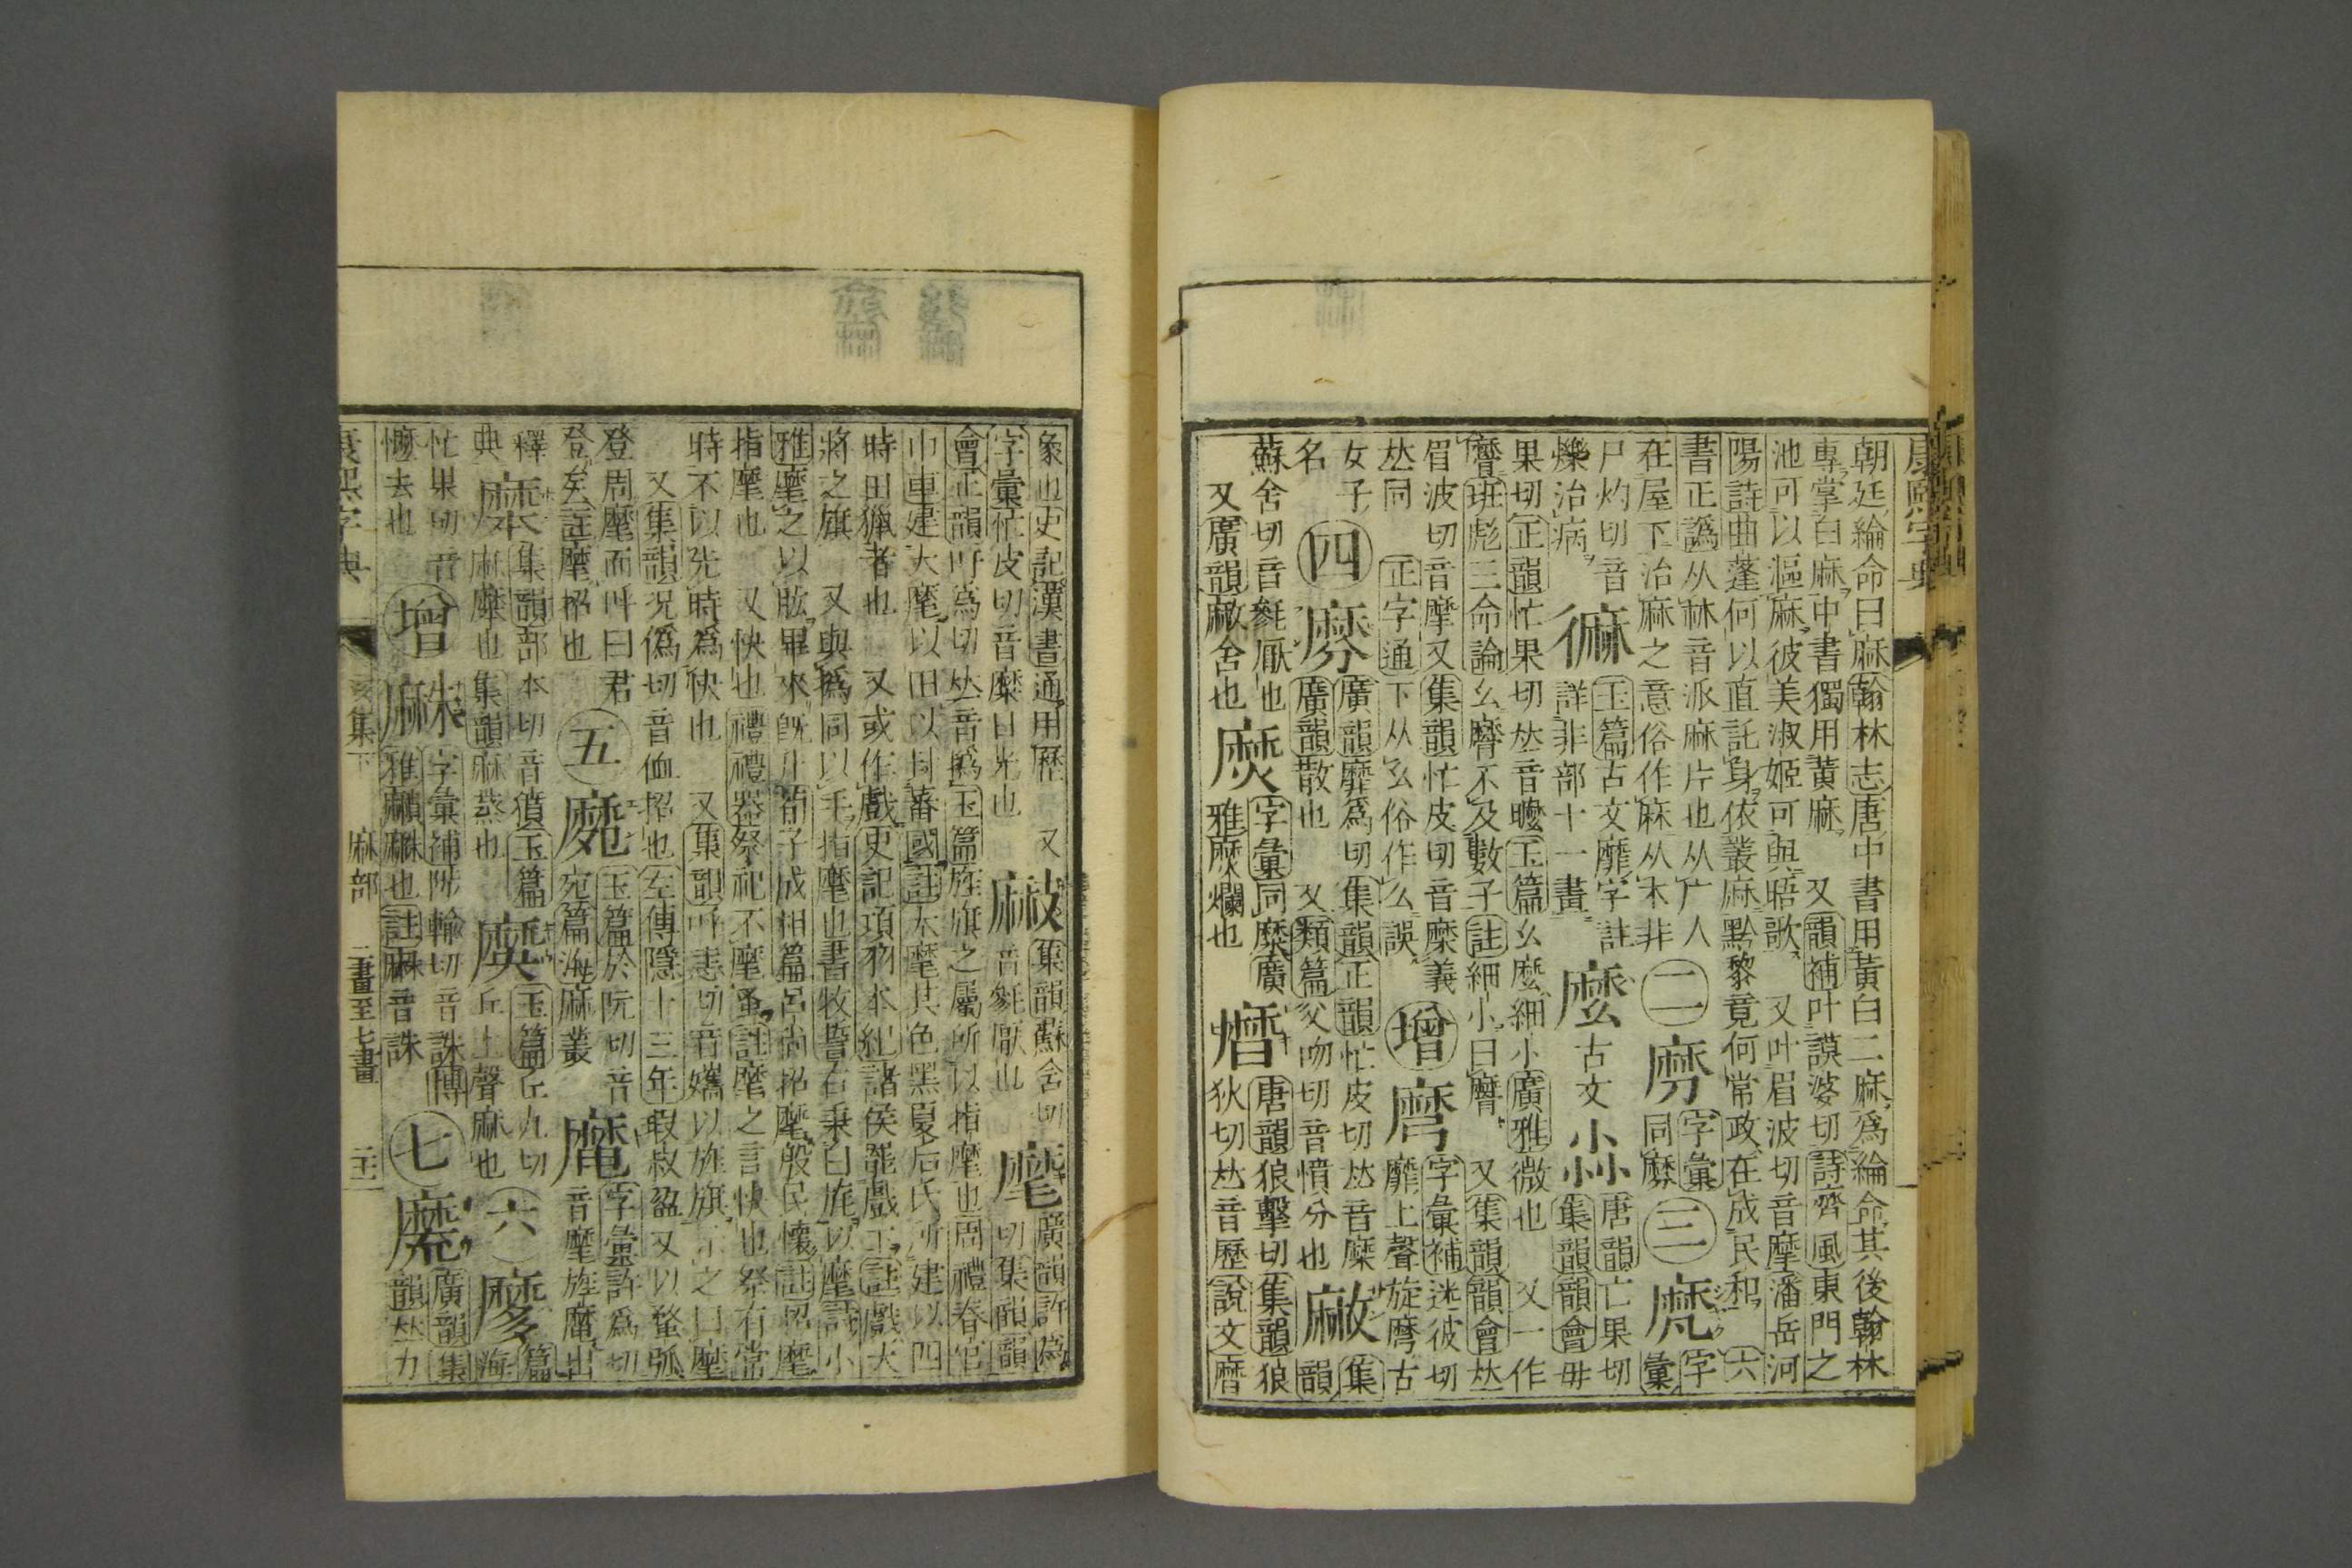 朝廷綸命曰麻翰林志唐中書用黃白二麻爲綸命其後翰林
專掌白麻中書獨用黃麻 又韻補叶謨婆切詩齊風東門之
池可以漚麻彼美淑姬可與晤歌 又叶眉波切音摩潘岳河
陽詩曲蓬何以直託身依叢麻黔黎竟何常政在成民和 六
書正譌从𣏟音派麻片也从广人
在屋下治麻之意俗作麻从木非
㊁
字彙
同
㊂
字
彙
尸灼切音
爍治病
玉篇古文靡字註
詳非部十一畫
麼
古文
唐韻亡果切
集韻韻會毋
果切正韻忙果切𠀤音㦬玉篇幺麼細小廣雅微也 又一作
麿班彪王命論幺麿不及數子註細小曰麿 又集韻韻會𠀤
眉波切音摩又集韻忙皮切音糜義
𠀤同 正字通下从幺俗作么誤
增
字彙補迷彼切
靡上聲旋麿古
女子
名
㊃
廣韻靡爲切集韻正韻忙皮切𠀤音糜
廣韻散也 又類篇父吻切音憤分也
集
韻
蘇舍切音毿厭也
又廣韻𪎠舍也
字彙同糜廣
雅糜爛也
唐韻狼擊切集韻狼
狄切𠀤音歷說文曆
象也史記漢書通用歷 又
字彙忙皮切音糜日光也
集韻蘇舍切
音毿厭也
麾
廣韻許爲
切集韻韻
會正韻吁爲切𠀤音撝玉篇旌旗之屬所以指麾也周禮春官
巾車建大麾以田以封蕃國註大麾其色黑夏后氏所建以四
時田獵者也 又或作戲史記項羽本紀諸侯罷戲下註戲大
將之旗 又與撝同以手指麾也書牧誓右秉白旄以麾詩小
雅麾之以肱畢來旣升荀子成相篇呂尚招麾殷民懷註招麾
指麾也 又快也禮禮器祭祀不麾蚤註麾之言快也祭有常
時不以先時爲快也 又集韻呼恚切音孈以旌旗示之曰麾
又集韻況僞切音侐招也左傳隱十三年瑕叔盈又以蝥弧
登周麾而呼曰君
登矣註麾招也
㊄
玉篇於阮切音
宛篇海麻叢
字彙許爲切
音麾旌麾出
釋
典
集韻部本切音獖玉篇
麻蘊也集韻麻蒸也
玉篇丘九切
丘上聲麻也
㊅
篇
海
忙果切音
懡去也
增
字彙補陟輸切音誅博
雅𪎭𪎲也註𪎲音誅
㊆
廣韻集
韻𠀤力
康熙字典
亥集下 麻部 二畫至七畫